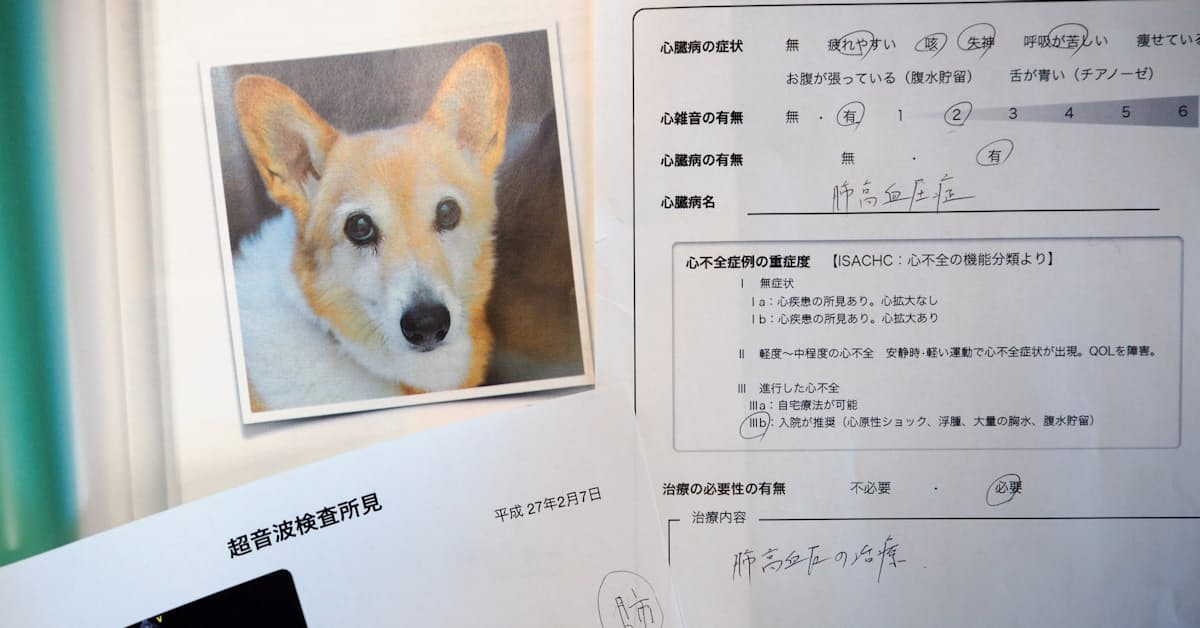 心臓病の症状 無 疲れやすい 咳 失神 呼吸が苦しい 痩せている
お腹が張っている（腹水貯留） 舌が青い（チアノーゼ）
心雑音の有無 無 ・ 有 1 2 3 4 5 6
心臓病の有無 無 ・ 有
心臓病名 肺高血圧症
心不全症例の重症度 【ISACHC：心不全の機能分類より】
Ⅰ 無症状
Ⅰa：心疾患の所見あり。心拡大なし
Ⅰb：心疾患の所見あり。心拡大あり
Ⅱ 軽度～中程度の心不全 安静時･軽い運動で心不全症状が出現。QOLを障害。
Ⅲ 進行した心不全
Ⅲa：自宅療法が可能
Ⅲb：入院が推奨（心原性ショック、浮腫、大量の胸水、腹水貯留）
治療の必要性の有無 不必要 ・ 必要
治療内容
肺高血圧の治療.
超音波検査所見
平成 27年2月7日
肺
V